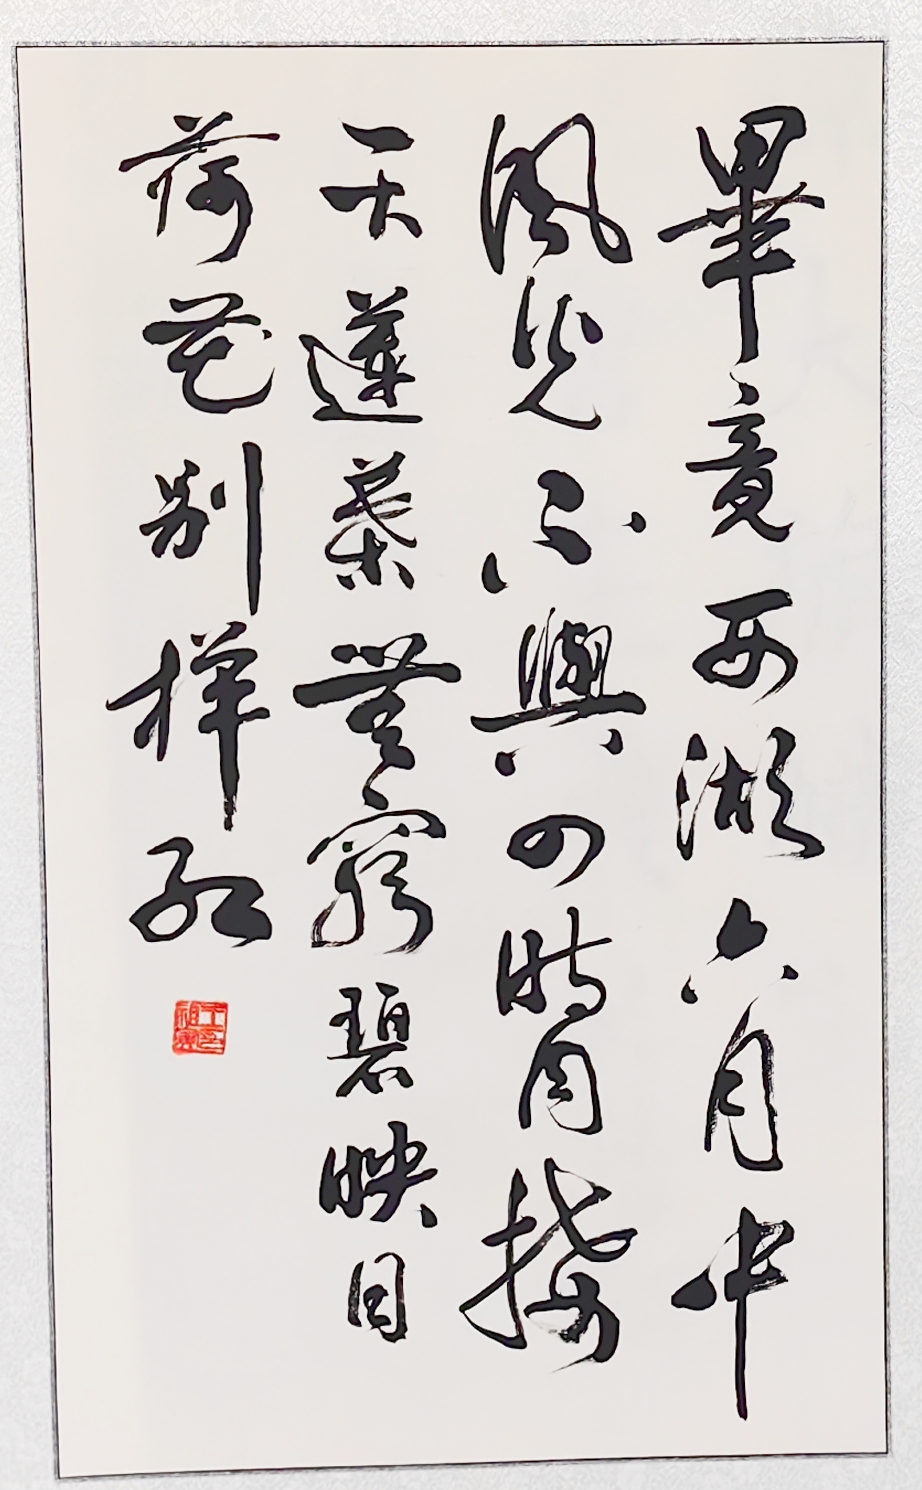 畢竟西湖六月中
風光不與四時同接
天蓮葉無窮碧映日
荷花别样紅